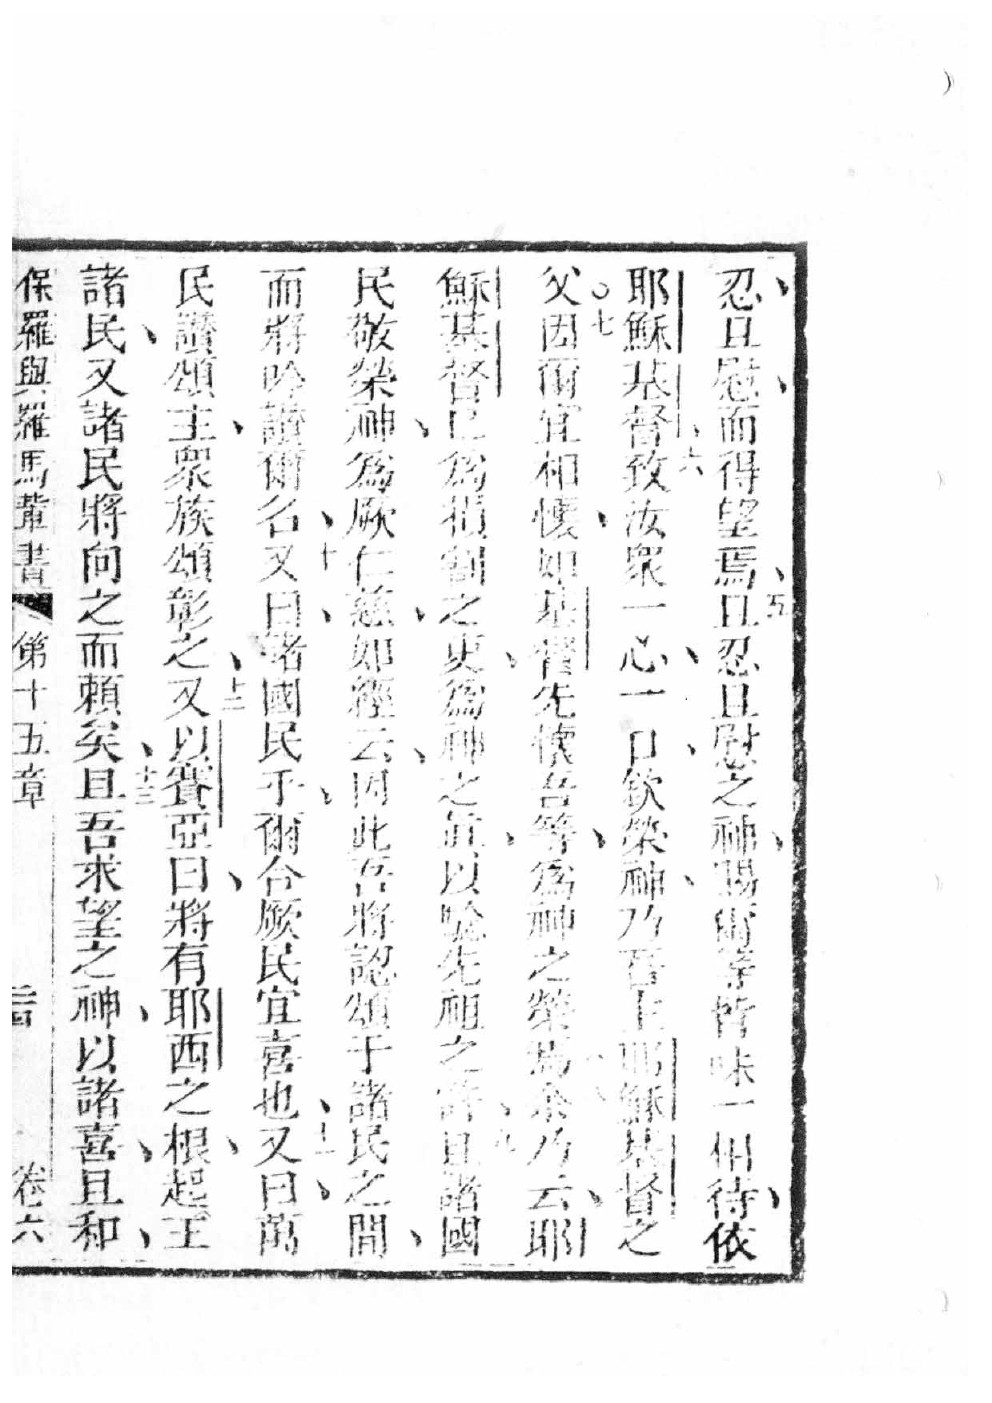 忍且慰而得望焉五且忍且慰之神賜爾等皆味一相待依
耶穌基督六致汝眾一心一口欽榮神乃吾主耶穌基督之
父七因爾宜相懷如基督先懷吾等為神之榮焉八余乃云耶
穌基督已為損割之吏為神之眞以驗先祖之許九且諸國
民敬榮神為厥仁慈如經云因此吾將認頌于諸民之間
而將吟讚爾名十又曰諸國民乎爾合厥民宜喜也十一又曰萬
民讚頌主衆族頌彰之十二又以賽亞曰將有耶西之根起王
諸民又諸民將向之而賴矣十三且吾求望之神以諸喜且和
保羅與羅馬輩書 第十五章 三四 卷六